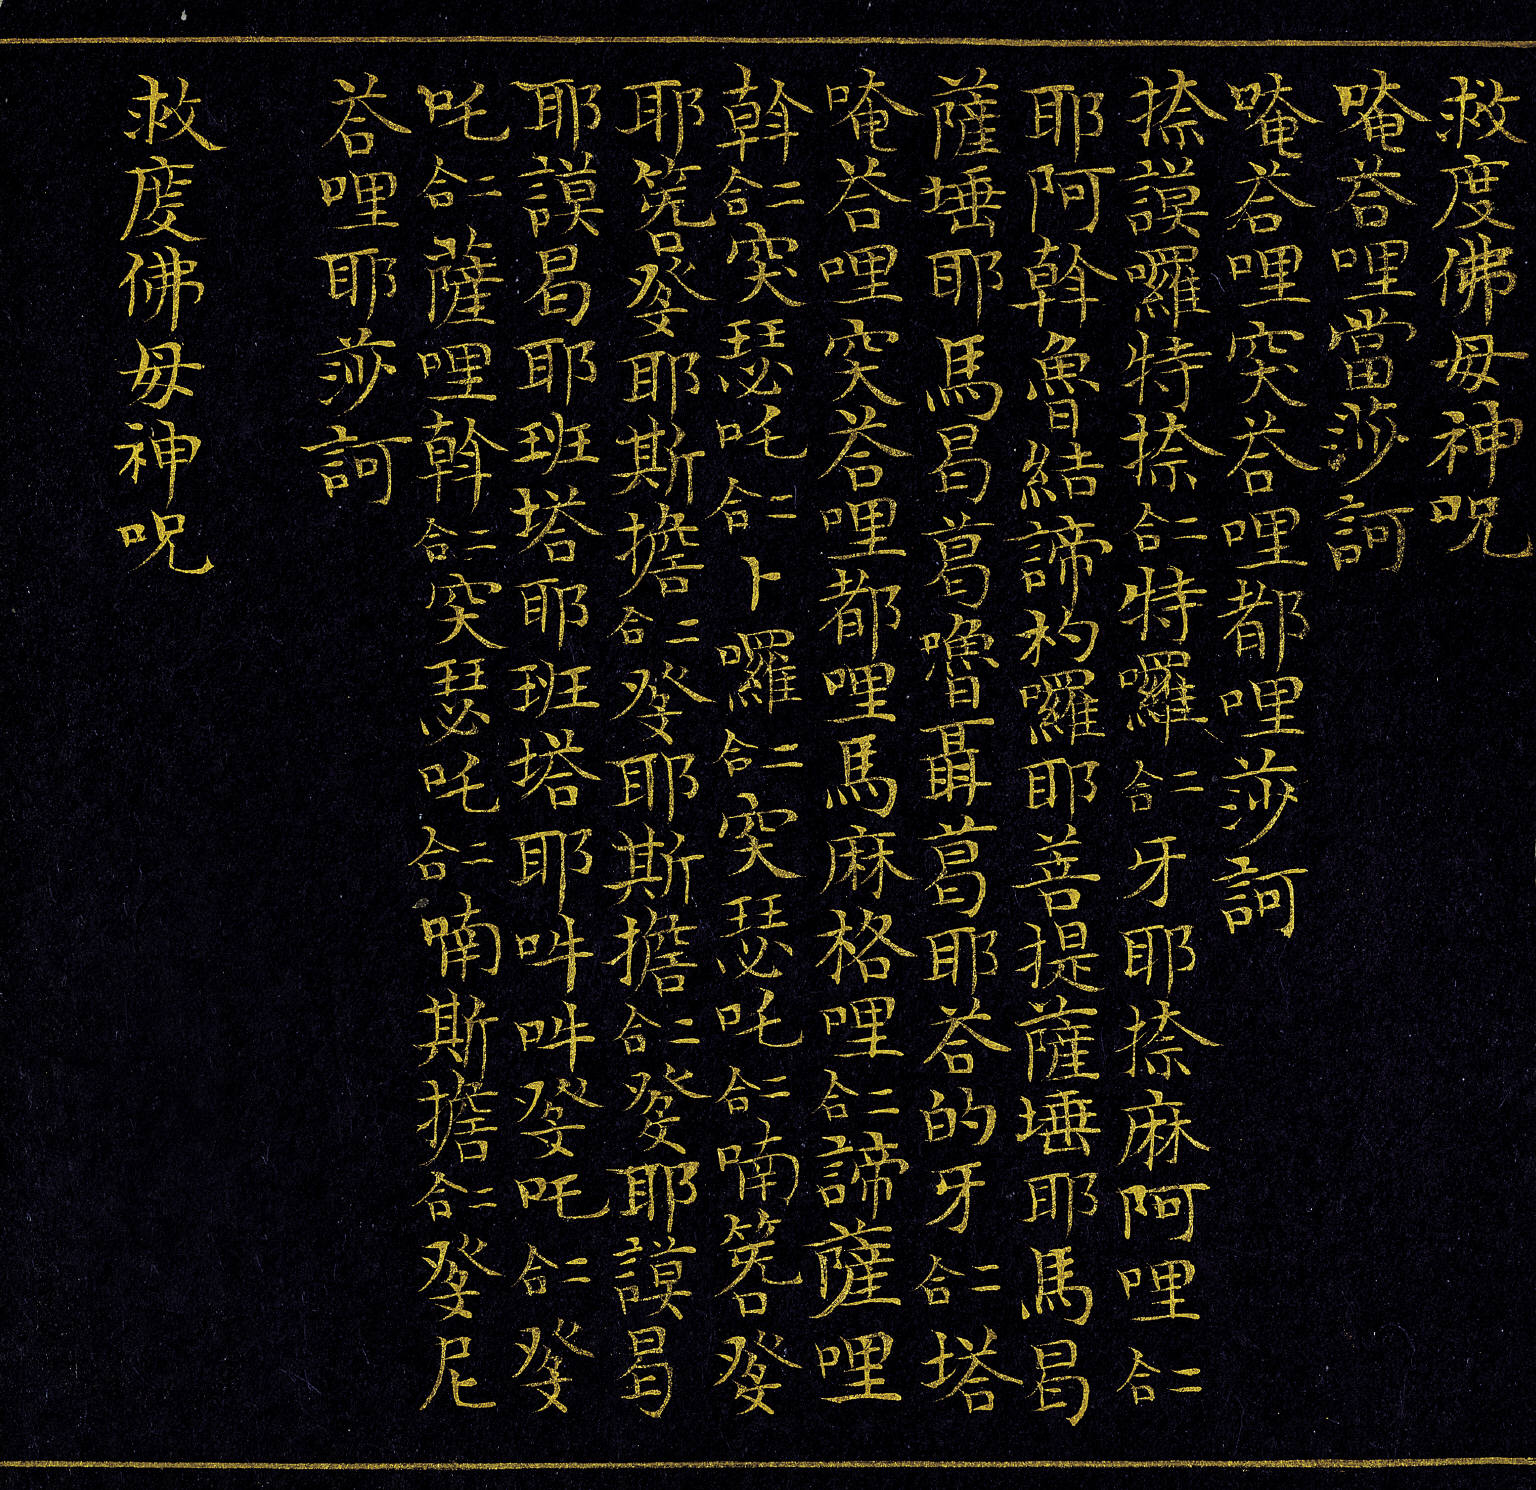 救度佛母神呪
唵荅哩當莎訶
唵荅哩突荅哩都哩莎訶
捺謨囉特捺二合特囉二合牙耶捺麻阿哩二合
耶阿斡魯結諦杓囉耶菩提薩埵耶馬曷
薩埵耶馬曷葛嚕聶葛耶荅的牙二合塔
唵荅哩突荅哩都哩馬麻格哩二合諦薩哩
斡二合突瑟吒二合卜囉二合突瑟吒二合喃筦發
耶筦發耶斯擔二合發耶斯擔二合發耶謨曷
耶謨曷耶班塔耶班塔耶吽吽發吒二合發
吒二合薩哩斡二合突瑟吒二合喃斯擔二合發尼
荅哩耶莎訶
救度佛母神呪